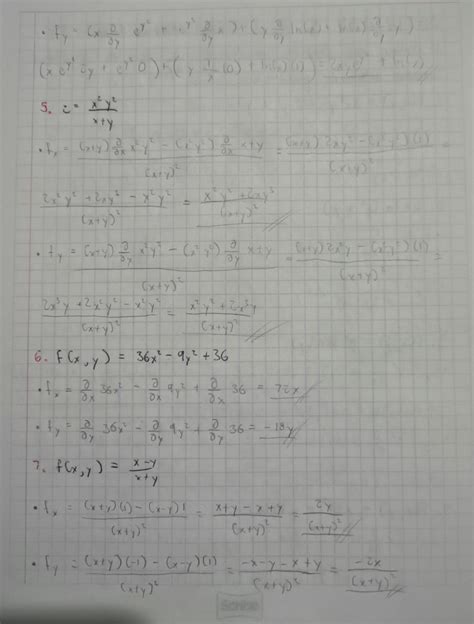 • f_y = (x ∂/∂y e^{y²} + e^{y²} ∂/∂y x) + (y ∂/∂y ln(x) + ln(x) ∂/∂y y)
5. z = x²y²/(x+y)
• f_x = ((x+y) ∂/∂x x²y² − (x²y²) ∂/∂x x+y)/(x+y)² = ((x+y) 2xy² − (x²y²)(1))/(x+y)² =
(2x²y² + 2xy³ − x²y²)/(x+y)² = (x²y² + 2xy³)/(x+y)²
• f_y = ((x+y) ∂/∂y x²y² − (x²y²) ∂/∂y x+y)/(x+y)² = ((x+y) 2x²y − (x²y²)(1))/(x+y)² =
(2x³y + 2x²y² − x²y²)/(x+y)² = (x²y² + 2x³y)/(x+y)²
6. f(x,y) = 36x² − 9y² + 36
• f_x = ∂/∂x 36x² − ∂/∂x 9y² + ∂/∂x 36 = 72x
• f_y = ∂/∂y 36x² − ∂/∂y 9y² + ∂/∂y 36 = −18y
7. f(x,y) = (x−y)/(x+y)
• f_x = ((x+y)(1) − (x−y)1)/(x+y)² = (x+y−x+y)/(x+y)² = 2y/(x+y)²
• f_y = ((x+y)(−1) − (x−y)(1))/(x+y)² = (−x−y−x+y)/(x+y)² = −2x/(x+y)²
Scribe